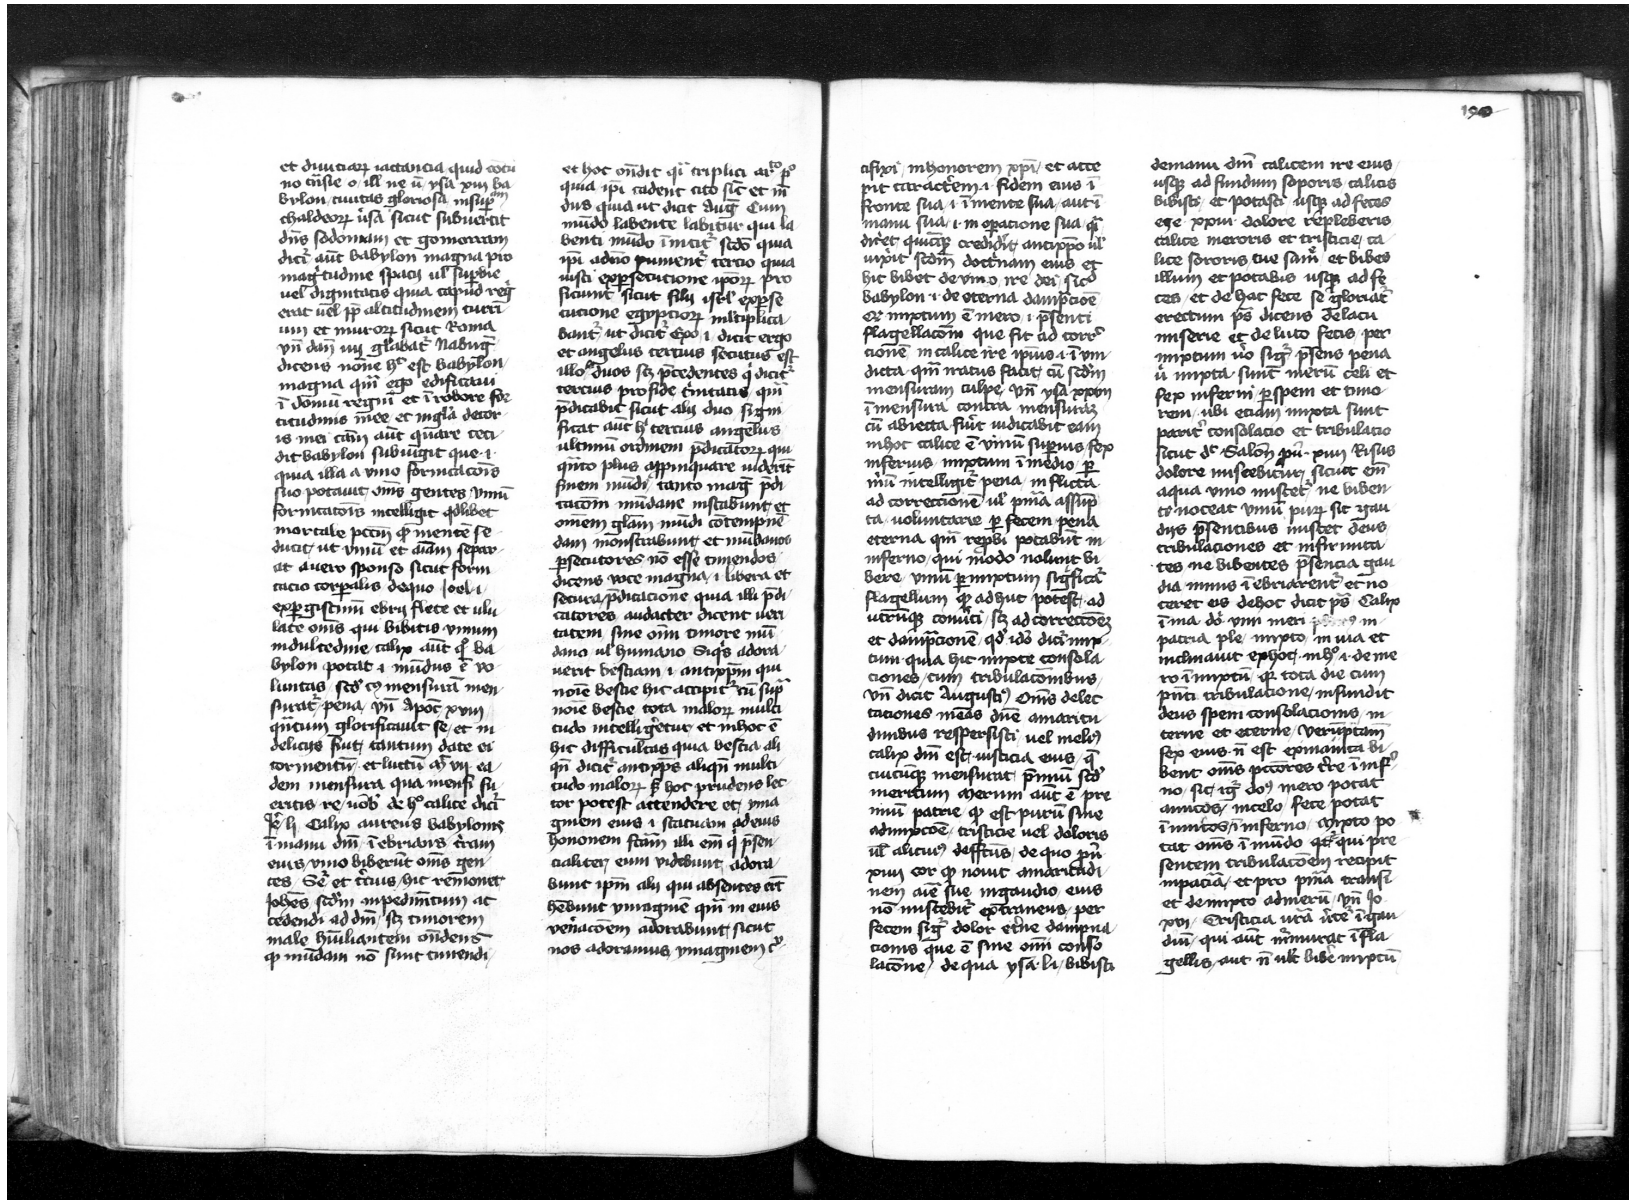 et diuiciarum iactancia quid cōtu
no cūsie o ill' ne ū ysa xiii ba
bylon ciuitas gloriosa
chaldeorꝝ ūsa sicut subuertit
dn̄s sodomam et gomorram
dict̄ aūt babylon magna pro
magitudine spacij ul' supbie
uel dignitatis quia caput regͥ
erat uel pp̄ altitudinem turri
um et murorꝝ sicut Roma
vn̄ dan̄ iiij Nabug̃
dicens nōne hͨ est babylon
magna quā ego edificaui
ī domū regni et ī robore for
titudinis mee et ingl'a decor
is mei cām aūt quare ceci
dit babylon subiūgit que ·i·
quia illa a vino fornicacōis
suo potauit om̄s gentes vinū
fornicatōis intelligit qdlibet
mortale pccm̄ qͥ mente se
ducit ut vinū et aīam separ
at a uero sponso sicut forni
cacio corp̄alis de quo Joel ·i·
expgiscimī ebrij flete et ulu
late om̄s qui bibitis vinum
in dulcedine calix aūt qͦ ba
bylon potat ·i· mūdus ē vo
luntas scd' cꝰ mensurā men
surat' pena vn̄ Apoc̄ xviij
qn̄tum glorificauit se et in
delicijs fuit tantum date ei
tormentū et luctū Mͭ vii ea
dem mensura qua mensi fu
eritis re uob' de hͦ calice dicit'
Je' li Calix aureus babylonis
ī manu dn̄i īebrians t'ram
eius vino biberūt om̄s gen
tes Se' et t'cius hic remonet
Johēs scd'm inpedimētum ac
cedendi ad dn̄m scz timorem
male hūiliantem ondens
qͥ mūdani nō sunt timendi
et hoc ondit qͥ triplici p'
quia ip̄i cadent cito sic et mū
dus quia ut dicit Aug̃ Cum
mūdo labente labitur qui la
benti mūdo īnitit' scd'o quia
ip̄i adiuo punient' tercio quia
iusti ex psecutione ip̄orꝝ pro
ficiunt sicut filij isrl' ex pse
cutione egyptiorꝝ mltiplica
bant' ut dicit' Exo ·i· dicit ergo
et angelus tercius secutus est
illos duos scz p̄cedentes dicit'
tercius pro fide t'nitatis quā
p̄dicabit sicut alij duo signi
ficat aūt hͥ tercius angelus
ultimū ordinem p̄dicatorꝝ qui
qn̄to plus appinquare uiderit
finem mūdi tanto mag̃ p̄di
cacōm mūdane instabunt et
omem glām mūdi cōtempnē
dam monstrabunt et mūdanos
psecutores nō esse timendos
dicens voce magna ·i· libera et
secura p̄dicacione quia illi p̄di
catores audacter dicent ueri
tatem sine om̄i timore mū
dano ul' humano Siqs adora
uerit bestiam ·i· antixpm̄ qui
noīe bestie hic accipit' cū sup̄
noīe bestie tota malorꝝ multi
tudo intelligeretur et in hoc ē
hic difficultas quia bestia ali
qn̄ dicit' antixps̄ aliqn̄ multi
tudo malorꝝ hoc prudens lec
tor potest attendere et yma
ginem eius ·i· statuam ad eius
honorem fctam illi em̄ q' p̄sen
cialiter eum videbunt adora
bunt ip̄m alij qui absentes er̄t
hēbunt ymaginē quā in eius
uen'acōem adorabunt sicut
nos adoramus ymaginem c'u
cifixi in honorem xpi et acce
pit caractērem ·i· fidem eius ī
fronte sua ·i· ī mente sua aut ī
manu sua ·i· in opacione sua
dic'et quicūq credid'it antixpo ul'
uixit scd'm doct'nam eius et
hic bibet de vino ire dei sic
babylon ·i· de eterna dampcioē
qd mixtum ē mero ·i· p̄senti
flagellacōni que fit ad corr'
cionē in calice ire ipius ·i· ī vin
dicta quā iratus facit cū scd'm
mensuram culpe vn̄ ysa xxvii
ī mensura contra mensurā
cū abiecta fu'it iudicabit eam
in hoc calice ē vinū supius fex
inferius mixtum ī medio p
uinū intelligit' pena in flicta
ad correctionē ul' assūp
ta voluntarie p fecem pena
eterna quā reprobi potabūt in
inferno qui modo nolunt bi
bere vinū p mixtum sig̃ficat'
flagellum qͥ ad huc potest ad
utrūq conu'ti scz ad correctōem
et dampcionē qd' ido dicit' mix
tum quia hic mixte consola
ciones cum tribulacōnibus
vn̄ dicit Augustiꝰ Om̄s delec
taciones meas dn̄e amaritu
dinibus respersisti uel melꝰ
calix dn̄i est iusticia eius q
cuicūq mensurat p'miū scd'
meritum Merum aūt ē pre
miū patrie qͥ est purū sine
admixcōe tristicie uel doloris
ul' alicuiꝰ defectus de quo pū
xiiij cor qͥ nouit amaritudi
nem aīe sue in gaudio eius
nō miscebit' extraneus per
fecem sig̃ dolor et'ne dampna
cionis que ē sine om̄i conso
lacōne de qua ysa li bibisti
de manu dn̄i calicem ire eius
usq ad fundum soporis calicis
bibisti et potasti usq ad feces
eze xxiij dolore repleberis
calice meroris et tristicie ca
lice sororis tue sam' et bibes
illum et potabis usq ad fe
ces et de hac fece se gloriat'
erectum ps̄ dicens de lacu
miserie et de luto fecis per
mixtum u'o sig̃ p̄sens pena
ū mixta sunt merū celi et
fex inferni p spem et timo
rem ubi etiam mixta sunt
parit' consolacio et tribulacio
sicut dͬ Salōn pū xiiij Risus
dolore miscebitur sicut em̄
aqua vino miscet' ne biben
ti noceat vinū purꝝ sic gau
dijs p̄sentibus miscet deus
tribulaciones et infirmita
tes ne bibentes p̄sencia gau
dia nimis īebriarent' et no
ceret eis de hoc dicit ps̄ Calix
ī ma do' vini meri in
patria ple mixto in via et
inclinauit ex hoc in hͦ ·i· de me
ro ī mixtū qͥ tota die cum
p̄nti tribulacione infundit
deus spem consolacionis in
terne et eterne veruptam
fex eius n̄ est exinanita bi
bent om̄s pctōres t're ī inf'
no sic igͬ doꝰ mero potat
amicos in celo fece potat
īimicos ī inferno Mixto po
tat om̄s ī mūdo qi qui pre
sentem tribulacōem recipit
in paciā et pro transi
et de mixto ad merū vn̄ Jo
xvi Tristicia ur̄a u'tet' ī gau
diū qui aūt m'murat ī fla
gellis aut n̄ ult bibe' mixtū